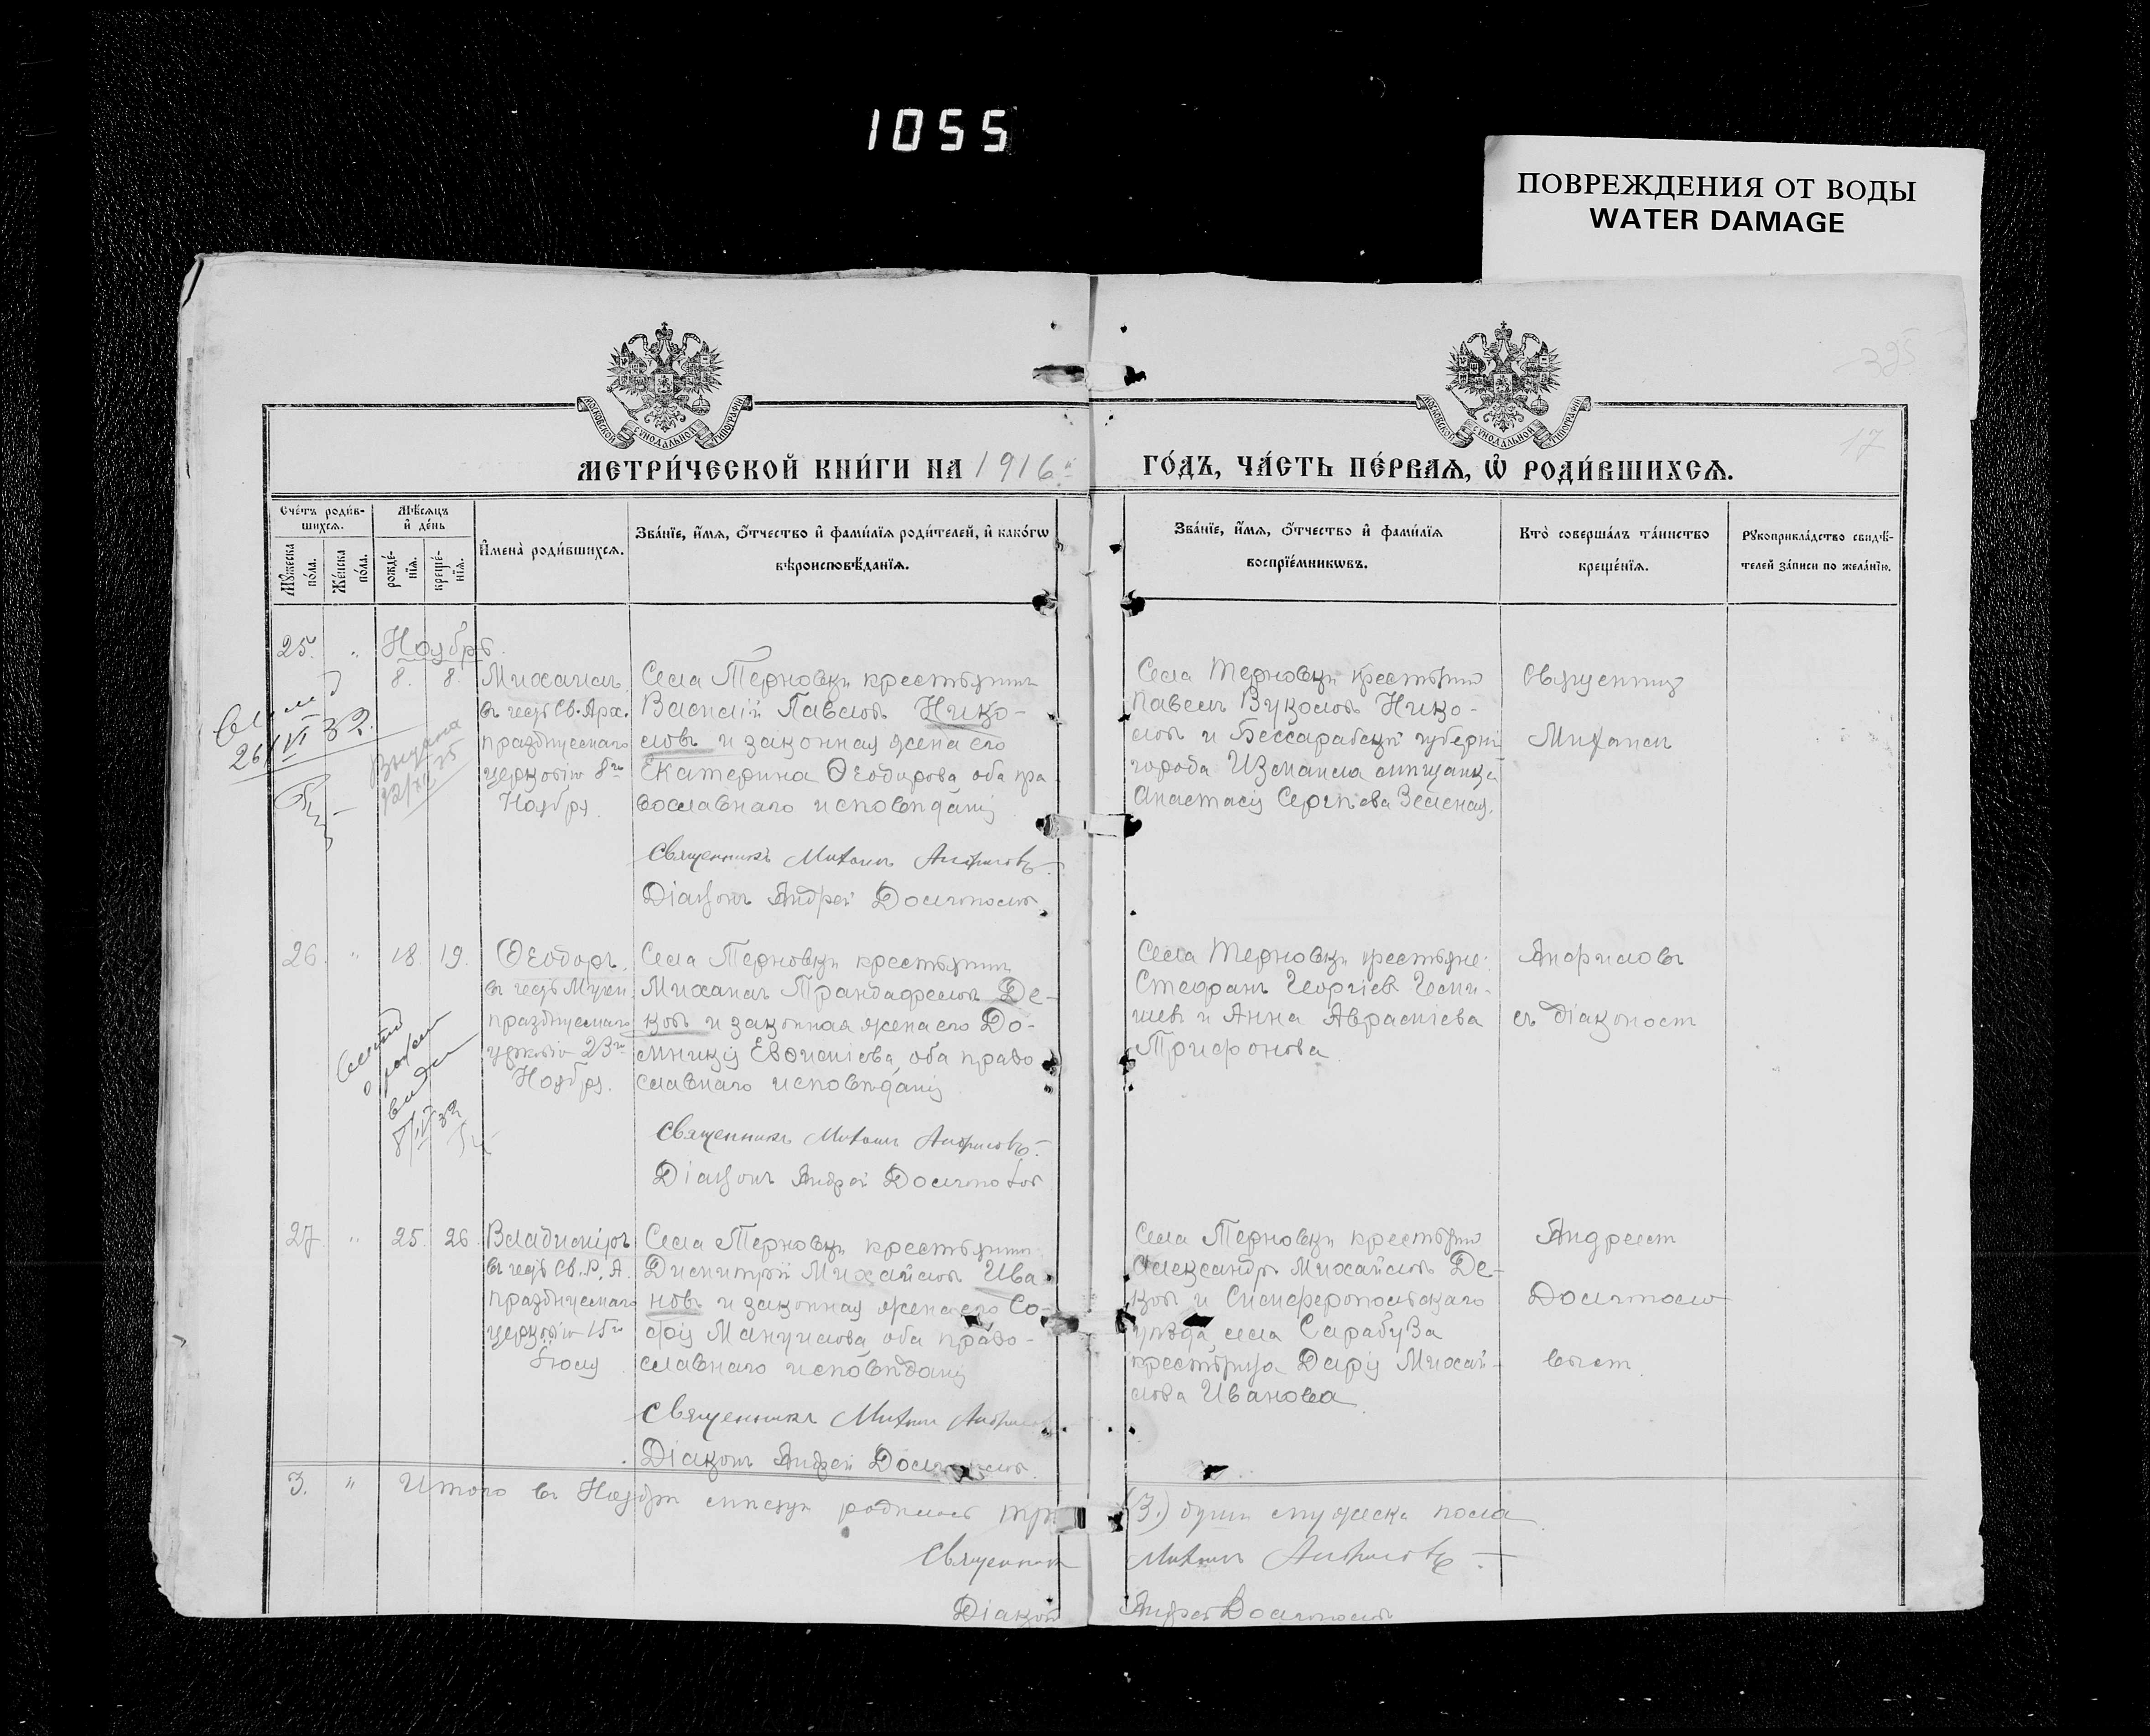 1055
ПОВРЕЖДЕНИЯ ОТ ВОДЫ
WATER DAMAGE
38
17
МОСКОВСКОЙ СѴНОДАЛЬНОЙ ТИПОГРАФІИ
МОСКОВСКОЙ СѴНОДАЛЬНОЙ ТИПОГРАФІИ
МЕТРИ́ЧЕСКОЙ КНИ́ГИ НА 1916 й
ГО́ДЪ, ЧА́СТЬ ПЕ́РВАЯ, Ѿ РОДИ́ВШИХСЯ.
Сче́тъ роди́в-
шихся.
Мѣ́сяцъ
и̑ де́нь
Мꙋ́жеска
по́ла.
Же́нска
по́ла.
рожде́-
нїя.
креще́-
нїя.
И̑мена̀ роди́вшихся.
Зва́нїе, и́мя, ѻ́тчество и̑ фами́лїя роди́телей, и̑ како́гѡ
вѣроисповѣ́данїя.
Зва́нїе, и́мя, ѻ́тчество и̑ фами́лїя
воспрїе́мникѡвъ.
Кто̀ соверша́лъ та́инство
креще́нїя.
Рꙋкоприкла́дство свидѣ́-
телей за́писи по жела́нїю.
25. " Ноябрь
8. 8. Михаилъ,
въ честь Св. Арх.
празднуемаго
церковію 8го
Ноября
Села Терновки крестьянинъ
Василій Павловъ Нико-
ловъ и законная жена его
Екатерина Ѳеодорова, оба пра
вославнаго исповѣданія
Священникъ Михаилъ Анфиловъ
Діаконъ Андрей Долгополовъ
Села Терновки крестьянинъ
Павелъ Вуколовъ Нико-
ловъ и Бессарабской губерніи
города Измаила мѣщанка
Анастасія Сергѣева Зеленая.
Священникъ
Михаилъ
26/VI 32.
Выдана
12/XII 25
26. " 18. 19. Ѳеодоръ,
въ честь Мучен.
празднуемаго
церковію 23го
Ноября.
Села Терновки крестьянинъ
Михаилъ Трандафиловъ Де-
ковъ и законная жена его До-
мникія Евѳиміева, оба право
славнаго исповѣданія
Священникъ Михаилъ Анфиловъ.
Діаконъ Андрей Долгополовъ
Села Терновки крестьяне:
Стефанъ Георгіевъ
и Анна Авраміева
Трифонова
Анфиловъ
съ діакономъ
о рожден
выдан
8/IV 32
27. " 25. 26. Владиміръ
въ честь Св. Р. А.
празднуемаго
церковію 15го
Іюля
Села Терновки крестьянинъ
Димитрій Михайловъ Ива-
новъ и законная жена его Со-
фія Мануилова, оба право-
славнаго исповѣданія
Священникъ Михаилъ Анфиловъ
Діаконъ Андрей Долгополовъ
Села Терновки крестьянинъ
Александръ Михайловъ Де-
ковъ и Симферопольскаго
уѣзда, села Сарабуза
крестьянка Дарія Михай-
лова Иванова
Андреемъ
Долгополо
вымъ
3. " Итого въ Ноябрѣ мѣсяцѣ родилось три (3.) души мужеска пола
Священникъ Михаилъ Анфиловъ
Діаконъ Андрей Долгополовъ